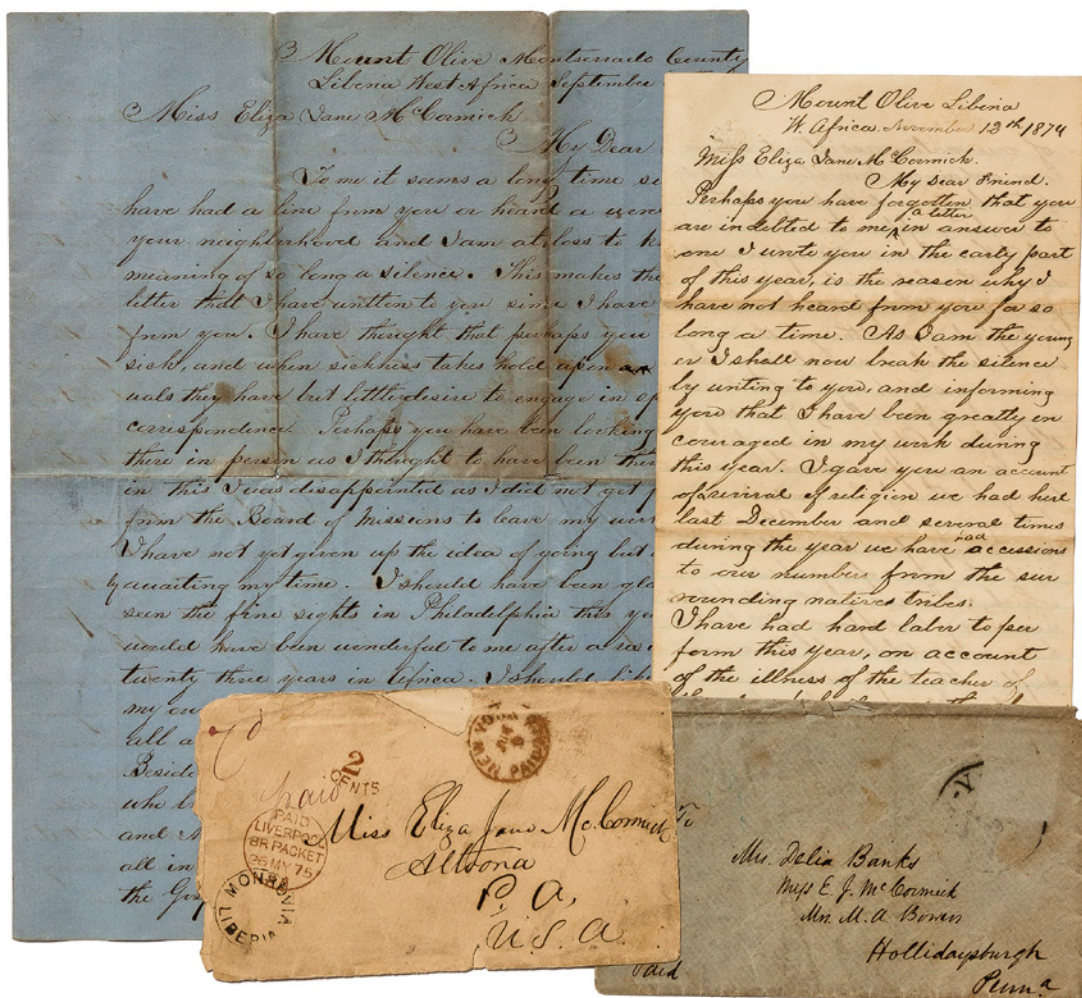 Mount Olive Montserrado County
Liberia West Africa September
Miss Eliza Jane McCormick
My Dear
To me it seems a long time si
have had a line from you or heard a word
your neighborhood and I am at loss to kn
meaning of so long a silence. This makes the
letter that I have written to you since I have
from you. I have thought that perhaps you
sick, and when sickness takes hold upon
uals they have but little desire to engage in ep
correspondence. Perhaps you have been looking
there in person as I thought to have been ther
in this I was disappointed as I did not get p
from the Board of Missions to leave my wor
I have not yet given up the idea of going but
awaiting my time. I should have been gla
seen the fine sights in Philadelphia this ye
would have been wonderful to me after a res
twenty three years in Africa. I should lik
my
all a
Besid
who
and
all in
the Gos
Mount Olive Liberia
W. Africa. November 13th 1874
Miss Eliza Jane McCormick.
My Dear Friend.
Perhaps you have forgotten that you
are indebted to me a letter in answer to
one I wrote you in the early part
of this year, is the reason why I
have not heard from you for so
long a time. As I am the young
er I shall now break the silence
by writing to you, and informing
you that I have been greatly en
couraged in my work during
this year. I gave you an account
of revival of religion we had here
last December and several times
during the year we have had accessions
to our numbers from the sur
rounding natives tribes.
I have had hard labor to per
form this year, on account
of the illness of the teacher of
NEW YORK
PAID
2
CENTS
paid
PAID
LIVERPOOL
BR PACKET
25 MY 75
MONROVIA
LIBERIA
Miss Eliza Jane McCormick
Altoona
P. A,
U. S. A.
To
Mrs. Delia Banks
Miss E. J. McCormick
Mrs. M. A. Bowers
Hollidaysburgh
Penna
Paid